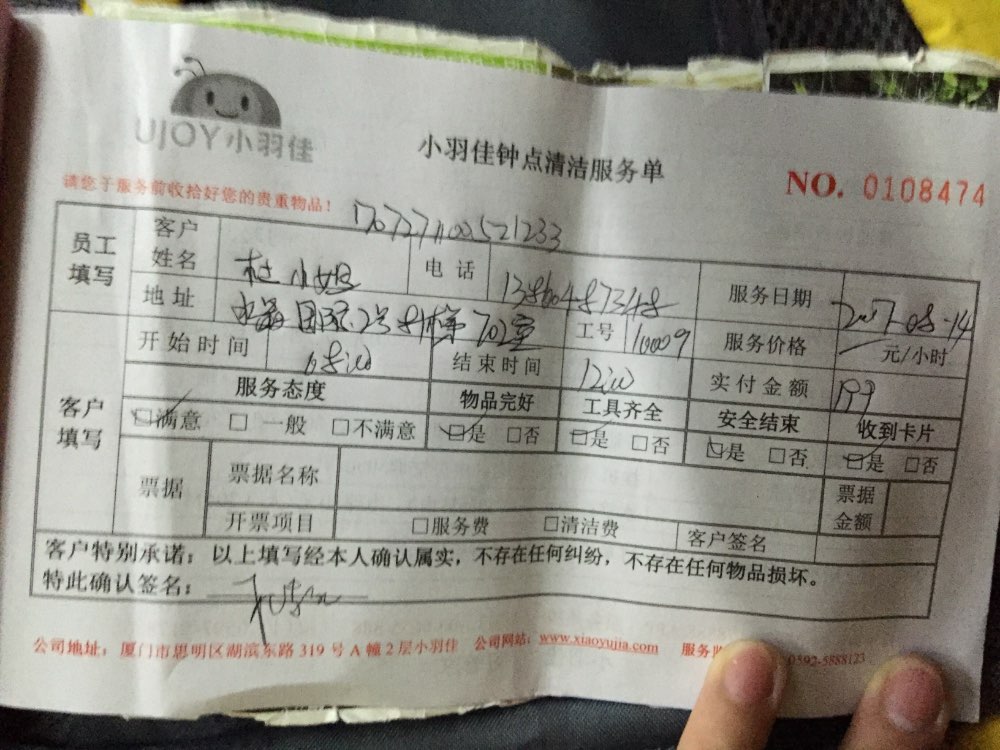 UJOY小羽佳
小羽佳钟点清洁服务单
NO. 0108474
请您于服务前收拾好您的贵重物品！
员工填写 客户姓名 杜小姐 电话 服务日期 2017-08-14
地址 国际2号 702室 工号 10009 服务价格 元/小时
开始时间 结束时间 实付金额
客户填写 服务态度 物品完好 工具齐全 安全结束 收到卡片
☑满意 □ 一般 □不满意 ☑是 □否 ☑是 □否 ☑是 □否 ☑是 □否
票据 票据名称 票据金额
开票项目 □服务费 □清洁费 客户签名
客户特别承诺：以上填写经本人确认属实，不存在任何纠纷，不存在任何物品损坏。
特此确认签名：
公司地址：厦门市思明区湖滨东路 319 号 A 幢 2 层小羽佳 公司网站：www.xiaoyujia.com 服务 0592-5888123